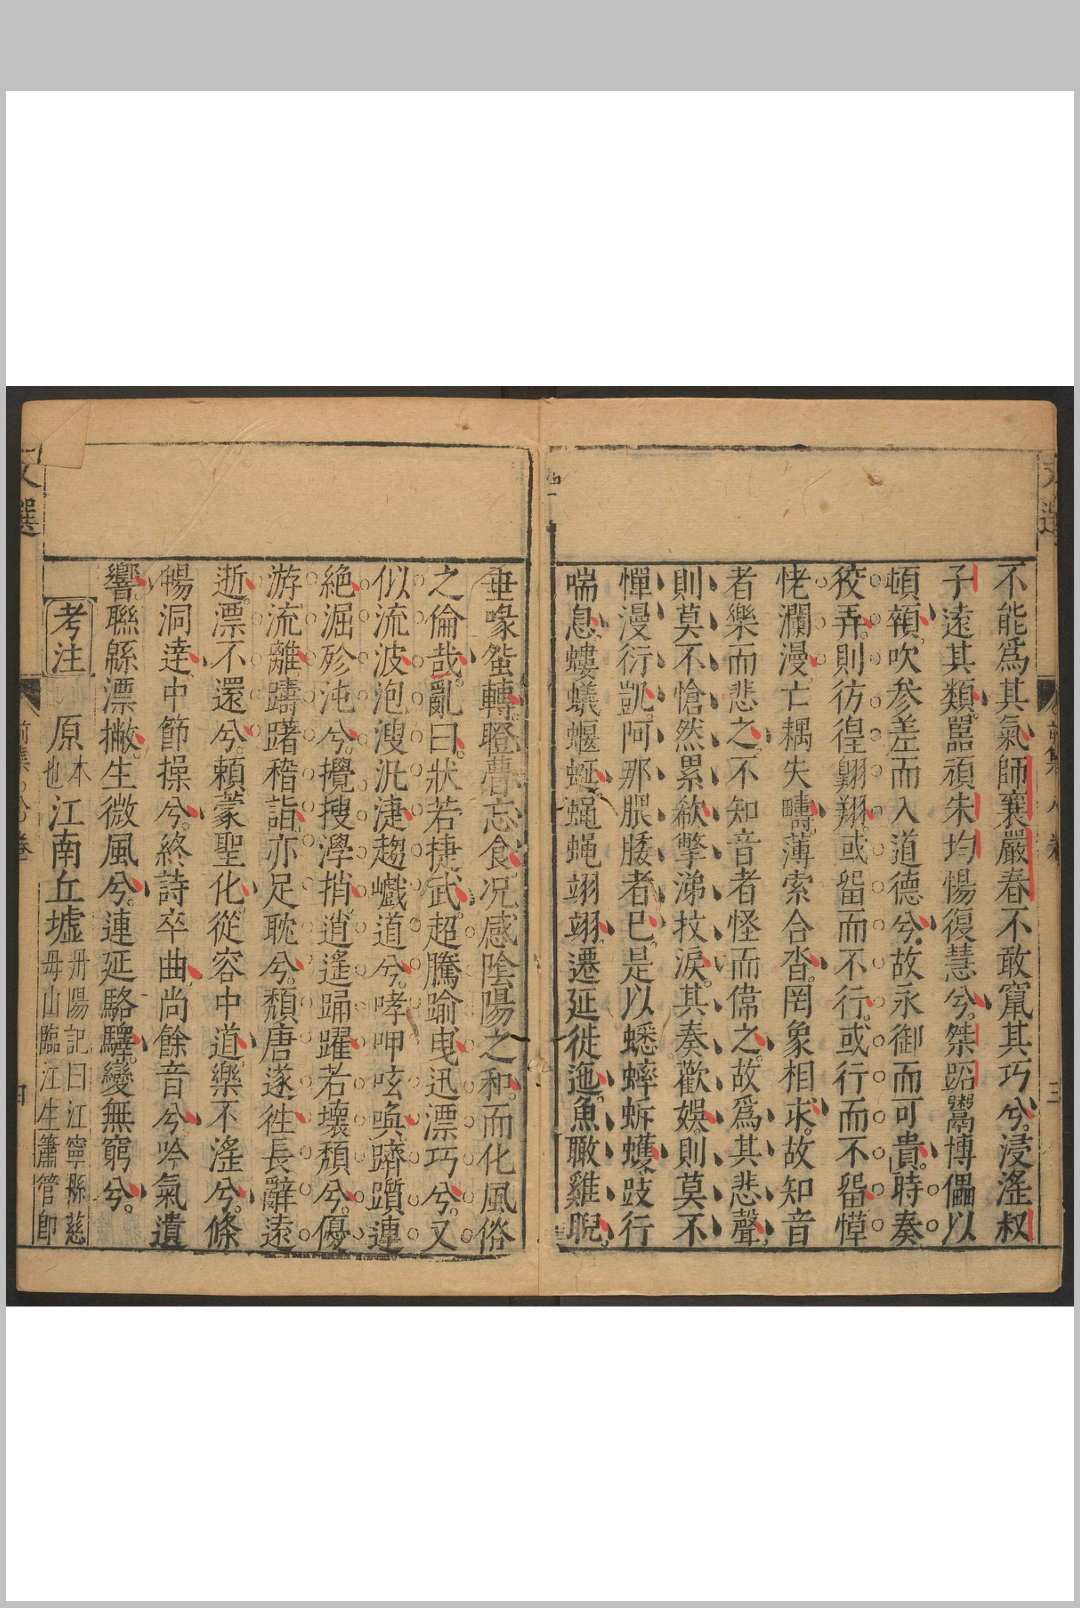 不能爲其氣師襄嚴春不敢竄其巧兮浸淫叔
子遠其類嚚頑朱均惕復慧兮桀跖鬻博儡以
頓顇吹參差而入道德兮故永御而可貴時奏
狡弄則彷徨翱翔或畱而不行或行而不畱愺
恅瀾漫亡耦失疇薄索合沓罔象相求故知音
者樂而悲之不知音者怪而偉之故爲其悲聲
則莫不愴然累欷擎涕抆淚其奏歡娛則莫不
憚漫衍凱阿那腲腇者已是以蟋蟀蚸蠖蚑行
喘息螻蟻蝘蜓蠅蠅翊翊遷延徙迤魚瞰雞睨
垂喙蜿轉瞪瞢忘食况感陰陽之和而化風俗
之倫哉亂曰狀若捷武超騰踰曳迅漂巧兮又
似流波泡溲汎㴔趨巇道兮哮呷呟喚躋躓連
絶淈殄沌兮攪搜㶅捎逍遥踊躍若壞頹兮優
游流離躊躇稽詣亦足耽兮頹唐遂徃長辭遠
逝漂不還兮賴蒙聖化從容中道樂不淫兮條
暢洞達中節操兮終詩卒曲尚餘音兮吟氣遺
響聯緜漂撇生微風兮連延駱驛變無窮兮
考注
原本也江南丘墟丹陽記曰江寧縣慈母山臨江生簫管卽
文選
前集
卷
三
四